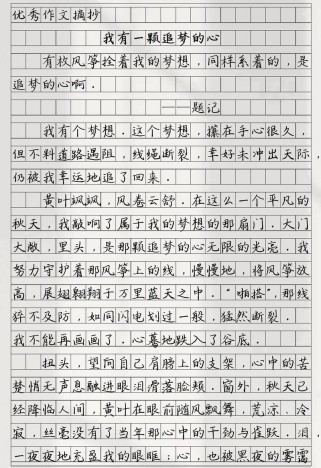 优秀作文摘抄
我有一颗追梦的心
有枚风筝拴着我的梦想，同样系着的，是
追梦的心啊．
——题记
我有个梦想．这个梦想，攥在手心很久，
但不料道路遇阻，线绳断裂，幸好未冲出天际，
仍被我幸运地追了回来．
黄叶飒飒，风卷云舒．在这么一个平凡的
秋天，我敲响了属于我的梦想的那扇门．大门
大敞，里头，是那颗追梦的心无限的光亮．我
努力守护着那风筝上的线，慢慢地，将风筝放
高，展翅翱翔于万里蓝天之中．“啪搭”，那线
猝不及防，如同闪电划过一般，猛然断裂．
我不能再画画了．心蓦地跌入了谷底．
扭头，望向自己肩膀上的支架，心中的苦
楚悄无声息融进眼泪滑落脸颊．窗外，秋天已
经降临人间，黄叶在眼前随风飘舞，荒凉、冷
寂，丝毫没有了当年那心中的干劲与雀跃．泪，
一夜夜地充盈我的眼眶；心，也被黑夜的雾霭